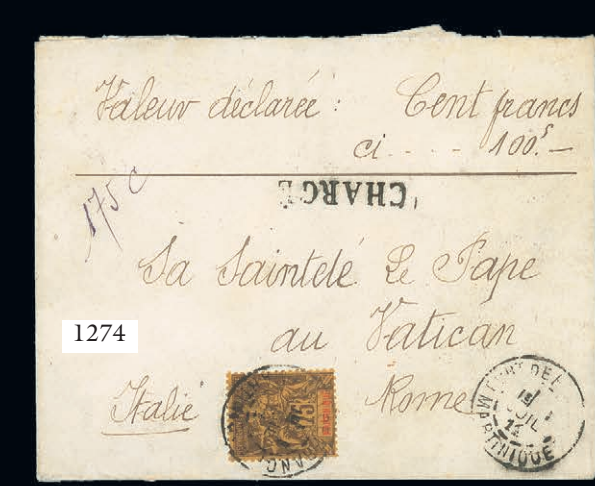 Valeur déclarée : Cent francs
ci - - - - 100.s –
175 c
CHARGÉ
Sa Sainteté Le Pape
1274
au Vatican
Italie
Rome
75
FORT DE F
JUIL
MARTINIQUE